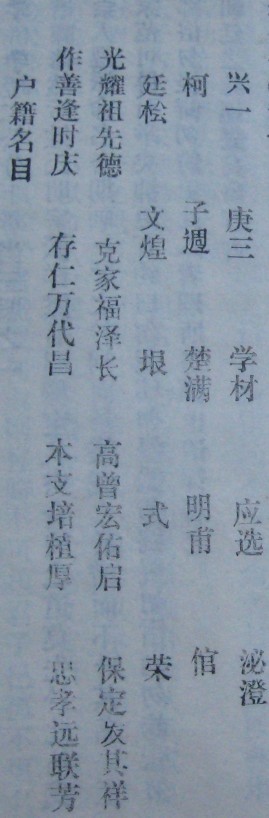 兴一 庚三 学材 应选 泌澄
柯 子週 楚满 明甫 倌
廷桧 文煌 垠 式 荣
光耀祖先德 克家福泽长 高曾宏佑启 保定发其祥
作善逢时庆 存仁万代昌 本支培植厚 忠孝远联芳
户籍名目